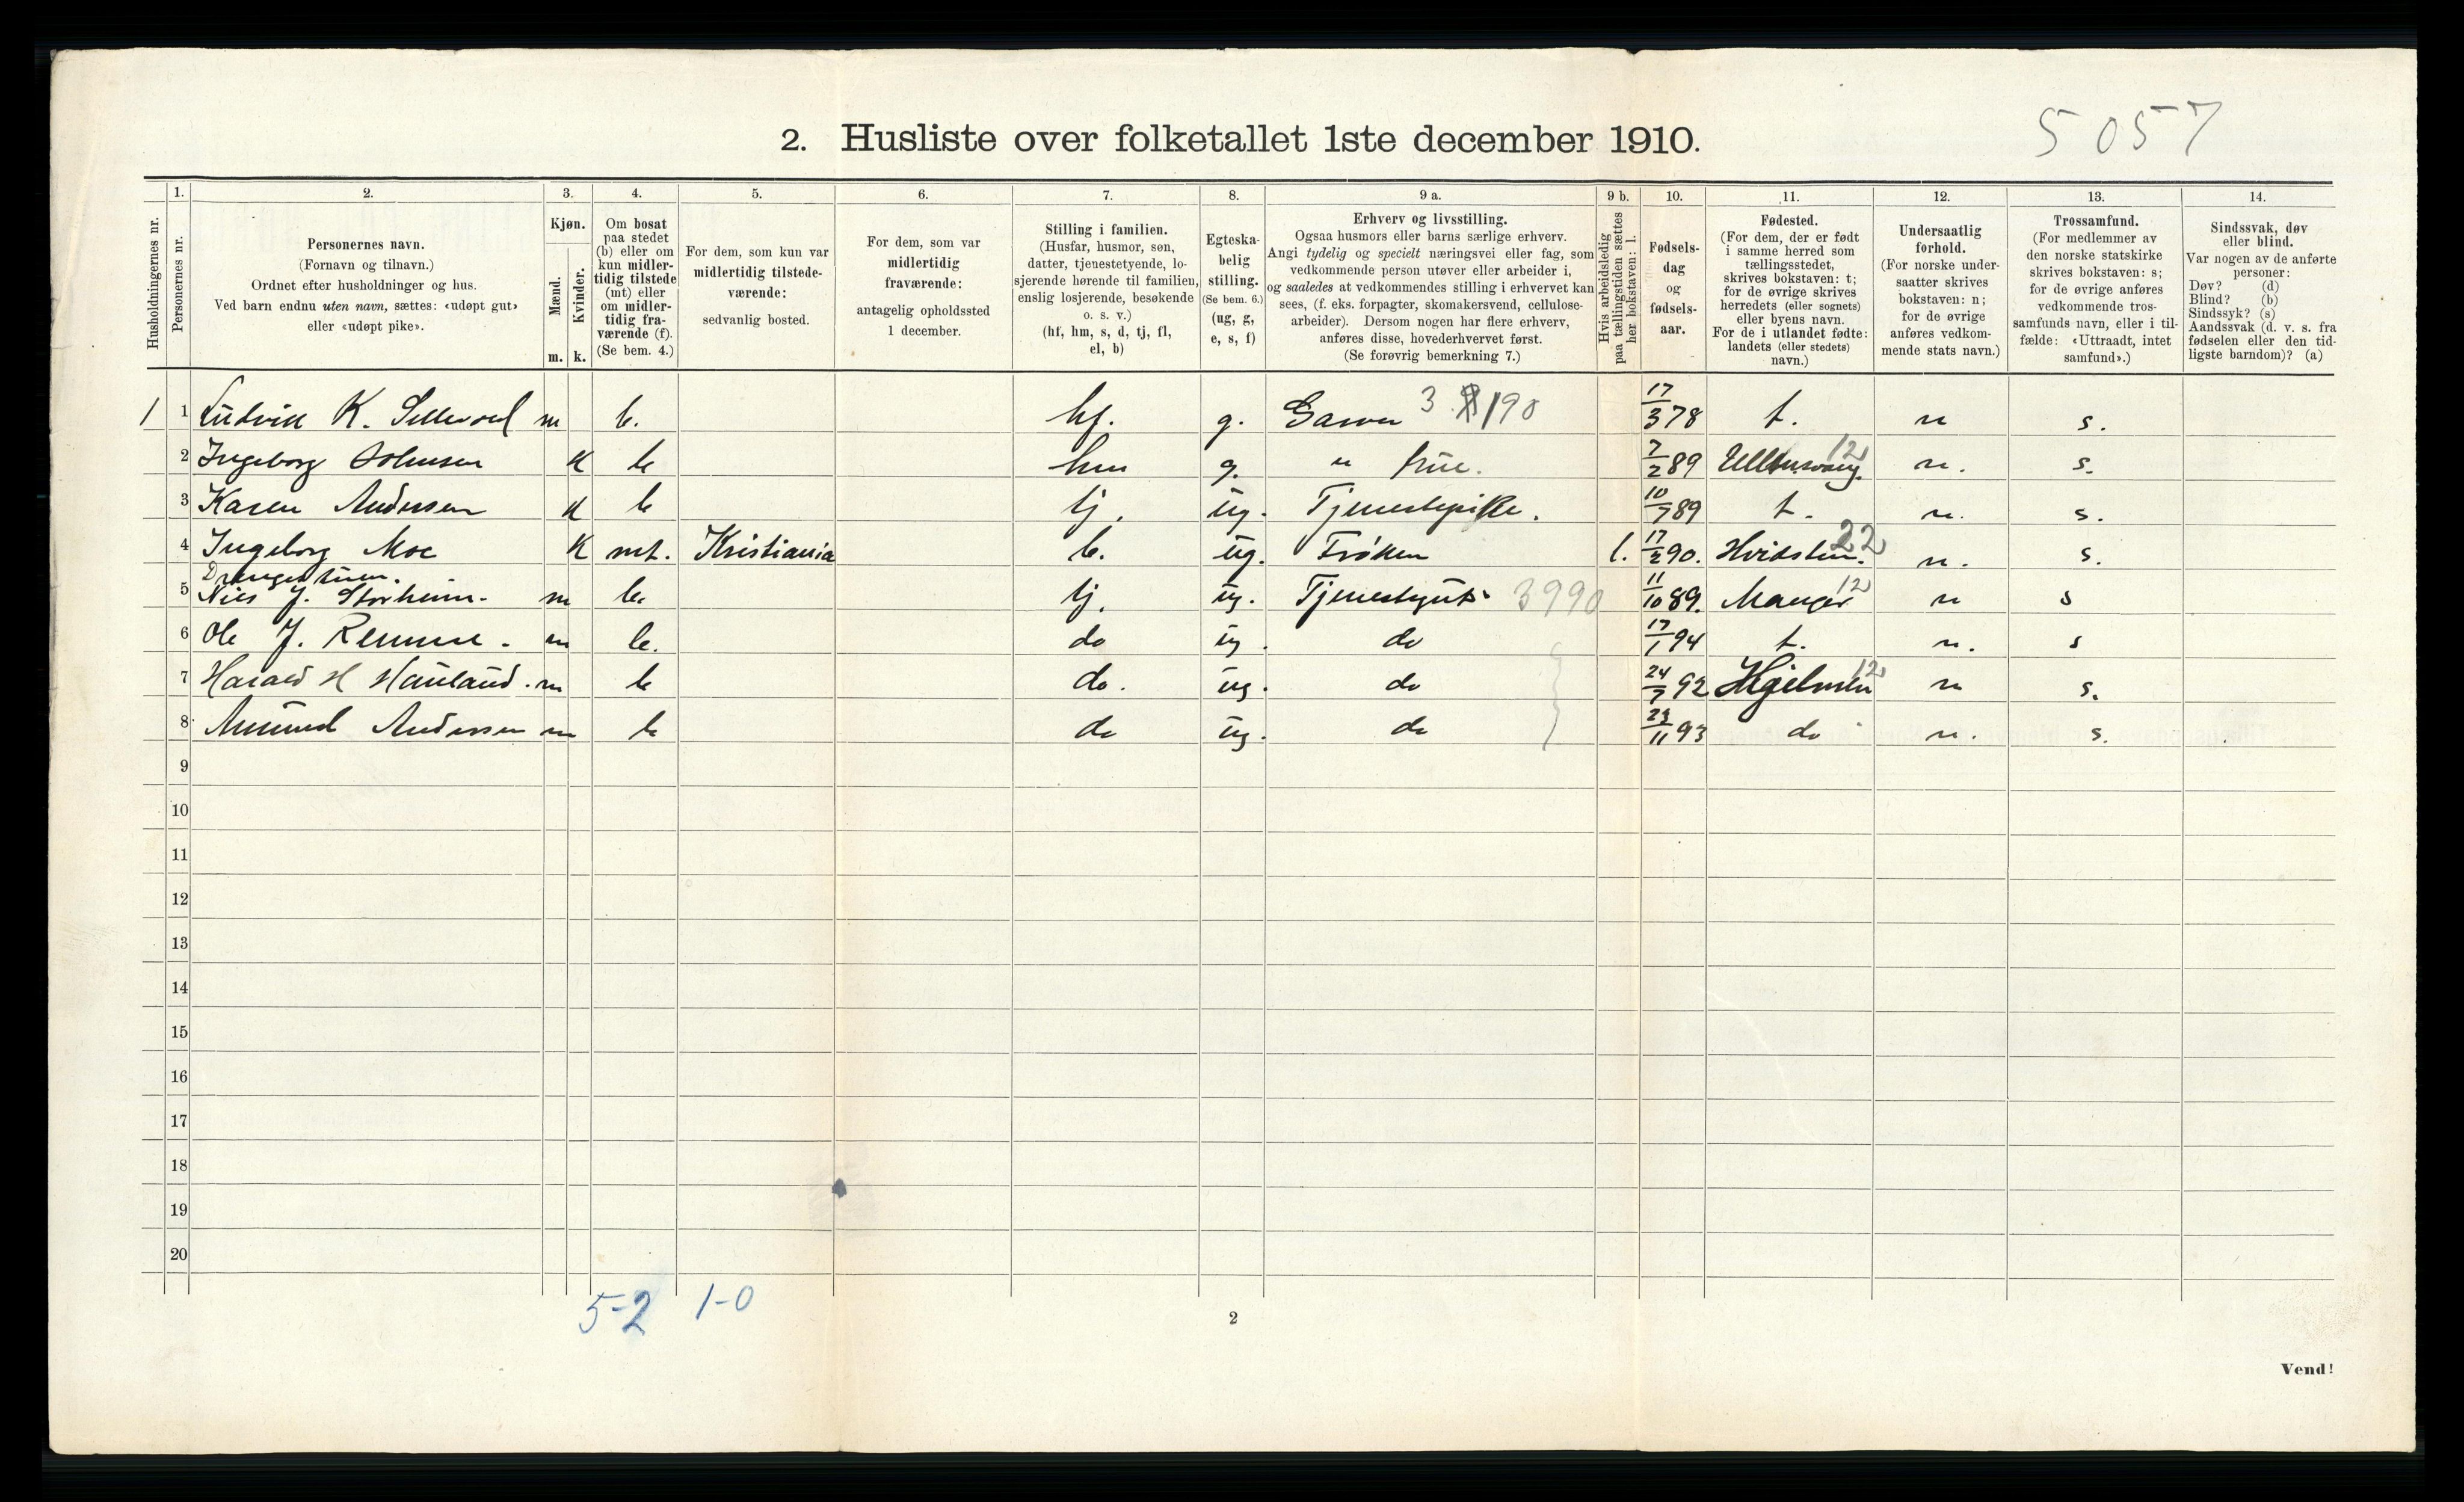 5057
2. Husliste over folketallet 1ste december 1910.
1. 2. 3. 4. 5. 6. 7. 8. 9 a. 9 b. 10. 11. 12. 13. 14.
Husholdningernes nr.
Personernes nr.
Personernes navn.
(Fornavn og tilnavn.)
Ordnet efter husholdninger og hus.
Ved barn endnu uten navn, sættes: «udøpt gut»
eller «udøpt pike».
Kjøn.
Mænd.
Kvinder.
m. k.
Om bosat
paa stedet
(b) eller om
kun midler-
tidig tilstede
(mt) eller
om midler-
tidig fra-
værende (f).
(Se bem. 4.)
For dem, som kun var
midlertidig tilstede-
værende:
sedvanlig bosted.
For dem, som var
midlertidig
fraværende:
antagelig opholdssted
1 december.
Stilling i familien.
(Husfar, husmor, søn,
datter, tjenestetyende, lo-
sjerende hørende til familien,
enslig losjerende, besøkende
o. s. v.)
(hf, hm, s, d, tj, fl,
el, b)
Egteska-
belig
stilling.
(Se bem. 6.)
(ug, g,
e, s, f)
Erhverv og livsstilling.
Ogsaa husmors eller barns særlige erhverv.
Angi tydelig og specielt næringsvei eller fag, som
vedkommende person utøver eller arbeider i,
og saaledes at vedkommendes stilling i erhvervet kan
sees, (f. eks. forpagter, skomakersvend, cellulose-
arbeider). Dersom nogen har flere erhverv,
anføres disse, hovederhvervet først.
(Se forøvrig bemerkning 7.)
Hvis arbeidsledig
paa tællingstiden sættes
her bokstaven: l.
Fødsels-
dag
og
fødsels-
aar.
Fødested.
(For dem, der er født
i samme herred som
tællingsstedet,
skrives bokstaven: t;
for de øvrige skrives
herredets (eller sognets)
eller byens navn.
For de i utlandet fødte:
landets (eller stedets)
navn.)
Undersaatlig
forhold.
(For norske under-
saatter skrives
bokstaven: n;
for de øvrige
anføres vedkom-
mende stats navn.)
Trossamfund.
(For medlemmer av
den norske statskirke
skrives bokstaven: s;
for de øvrige anføres
vedkommende tros-
samfunds navn, eller i til-
fælde: «Uttraadt, intet
samfund».)
Sindssvak, døv
eller blind.
Var nogen av de anførte
personer:
Døv? (d)
Blind? (b)
Sindssyk? (s)
Aandssvak (d. v. s. fra
fødselen eller den tid-
ligste barndom)? (a)
1 1 Ludvik K. m b. hf. g. 17/3 78 t. n s.
2 Ingeborg Johnsen K b hm g. " frue. 7/2 89 Ullensvang 12 n. s.
3 Karen Andersen K b tj. ug. Tjenestepike. 10/7 89 t. n. s.
4 Ingeborg Moe K mt. Kristiania b. ug. Frøken l. 17/2 90. Hvidsten. 22 n. s.
5 Nils J. Storheim. m b. tj. ug. Tjenestegut 3990 11/10 89. Manger 12 n s
6 Ole J. m b. do ug. do 17/1 94 t. n. s
7 Harald H Hauland. m b do. ug. do 24/7 92 Hjelmen 12 n s.
8 Amund Andersen m b do ug. do 23/11 93 do n. s.
9
10
11
12
13
14
15
16
17
18
19
20
5-2 1-0
2
Vend!